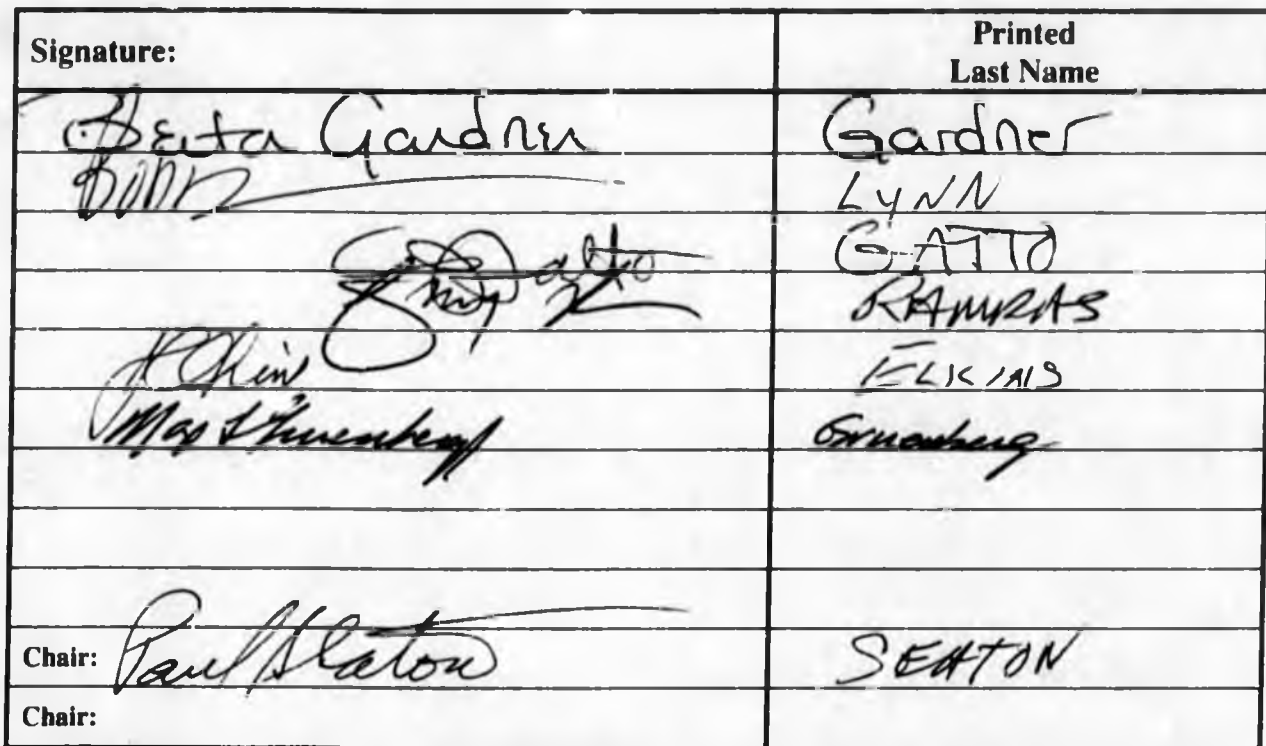 Signature: Printed
Last Name
Berta Gardner Gardner
LYNN
Gatto GATTO
RAMRAS
ELKINS
Max Gruenberg Gruenberg
Chair: Paul Seaton SEATON
Chair: